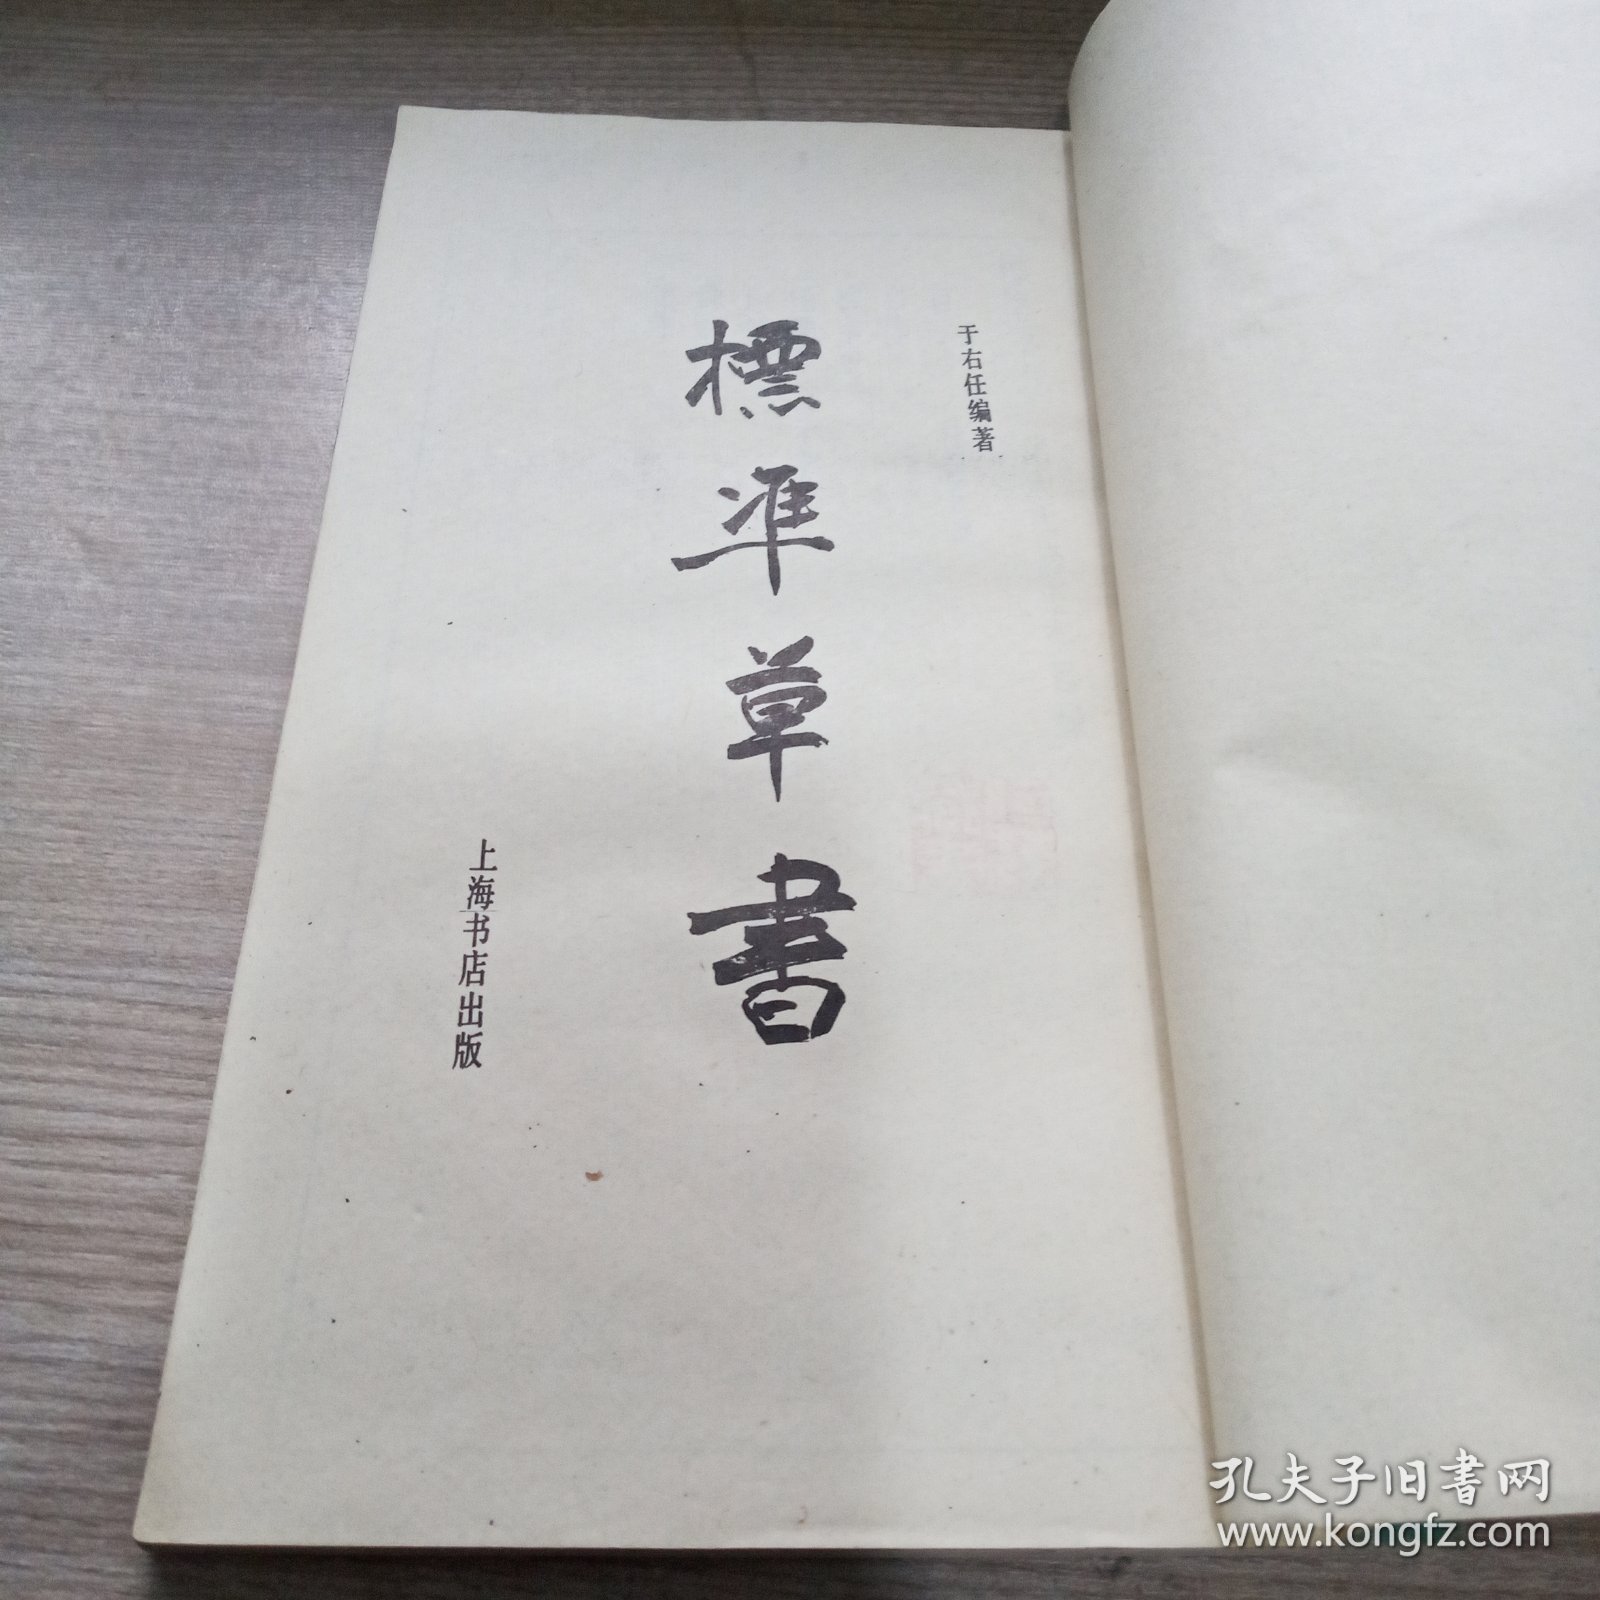 于右任编著
標準草書
上海书店出版
孔夫子旧书网
www.kongfz.com